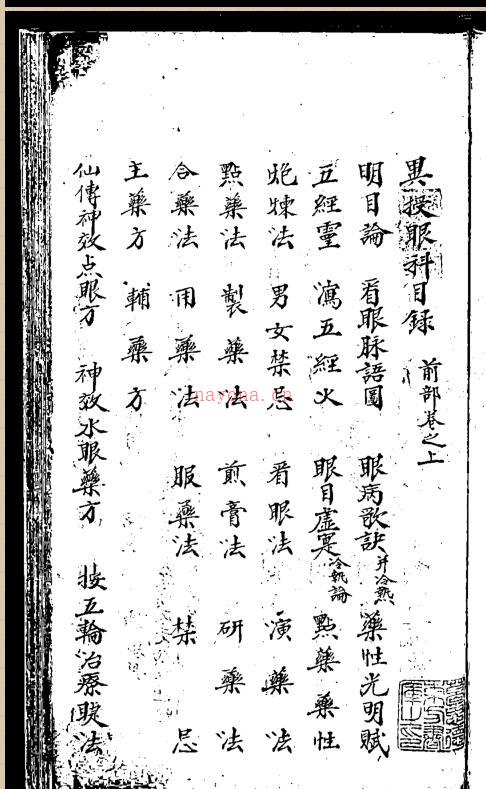 異授眼科目録 前部卷之上
明目論 看眼脉語圖 眼病歌訣并冷熱 藥性光明賦
五經靈 瀉五經火 眼目虛寔冷熱論 點藥藥性
炮煉法 男女禁忌 看眼法 演藥法
點藥法 製藥法 煎膏法 研藥法
合藥法 用藥法 服藥法 禁忌
主藥方 輔藥方
仙傳神效点眼方 神效水眼藥方 按五輪治療眼法